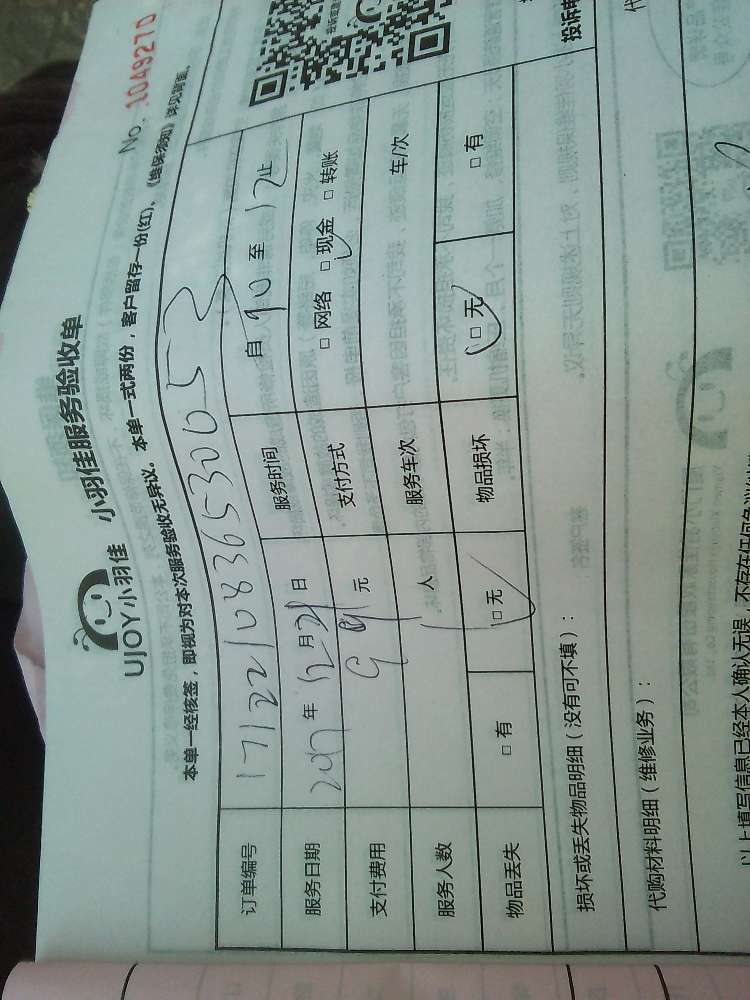 No. 1049270
UJOY小羽佳 小羽佳服务验收单
本单一经核签，即视为对本次服务验收无异议。本单一式两份，客户留存一份(红)、《维保须知》详见背面。
订单编号 171221083653005
服务日期 2017年12月21日 服务时间 自 90 至 12止
支付费用 元 支付方式 □网络 □现金 □转账
服务人数 1人 服务车次 车/次
物品丢失 □有 □无 物品损坏 □无 □有
损坏或丢失物品明细（没有可不填）：
代购材料明细（维修业务）：
以上填写信息已经本人确认无误，不存在任何